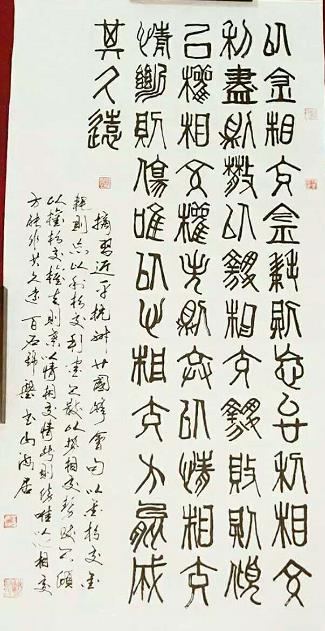 以金相交金耗則忘以利相交
利盡則散以勢相交勢敗則傾
以權相交權失則棄以情相交
情斷則傷唯以心相交方能成
其久遠
摘習近平杭州廿國峰會句以金相交金
耗則忘以利相交利盡則散以勢相交勢敗則傾
以權相交權失則棄以情相交情斷則傷唯以心相交
方能成其久遠百石錦書山海居